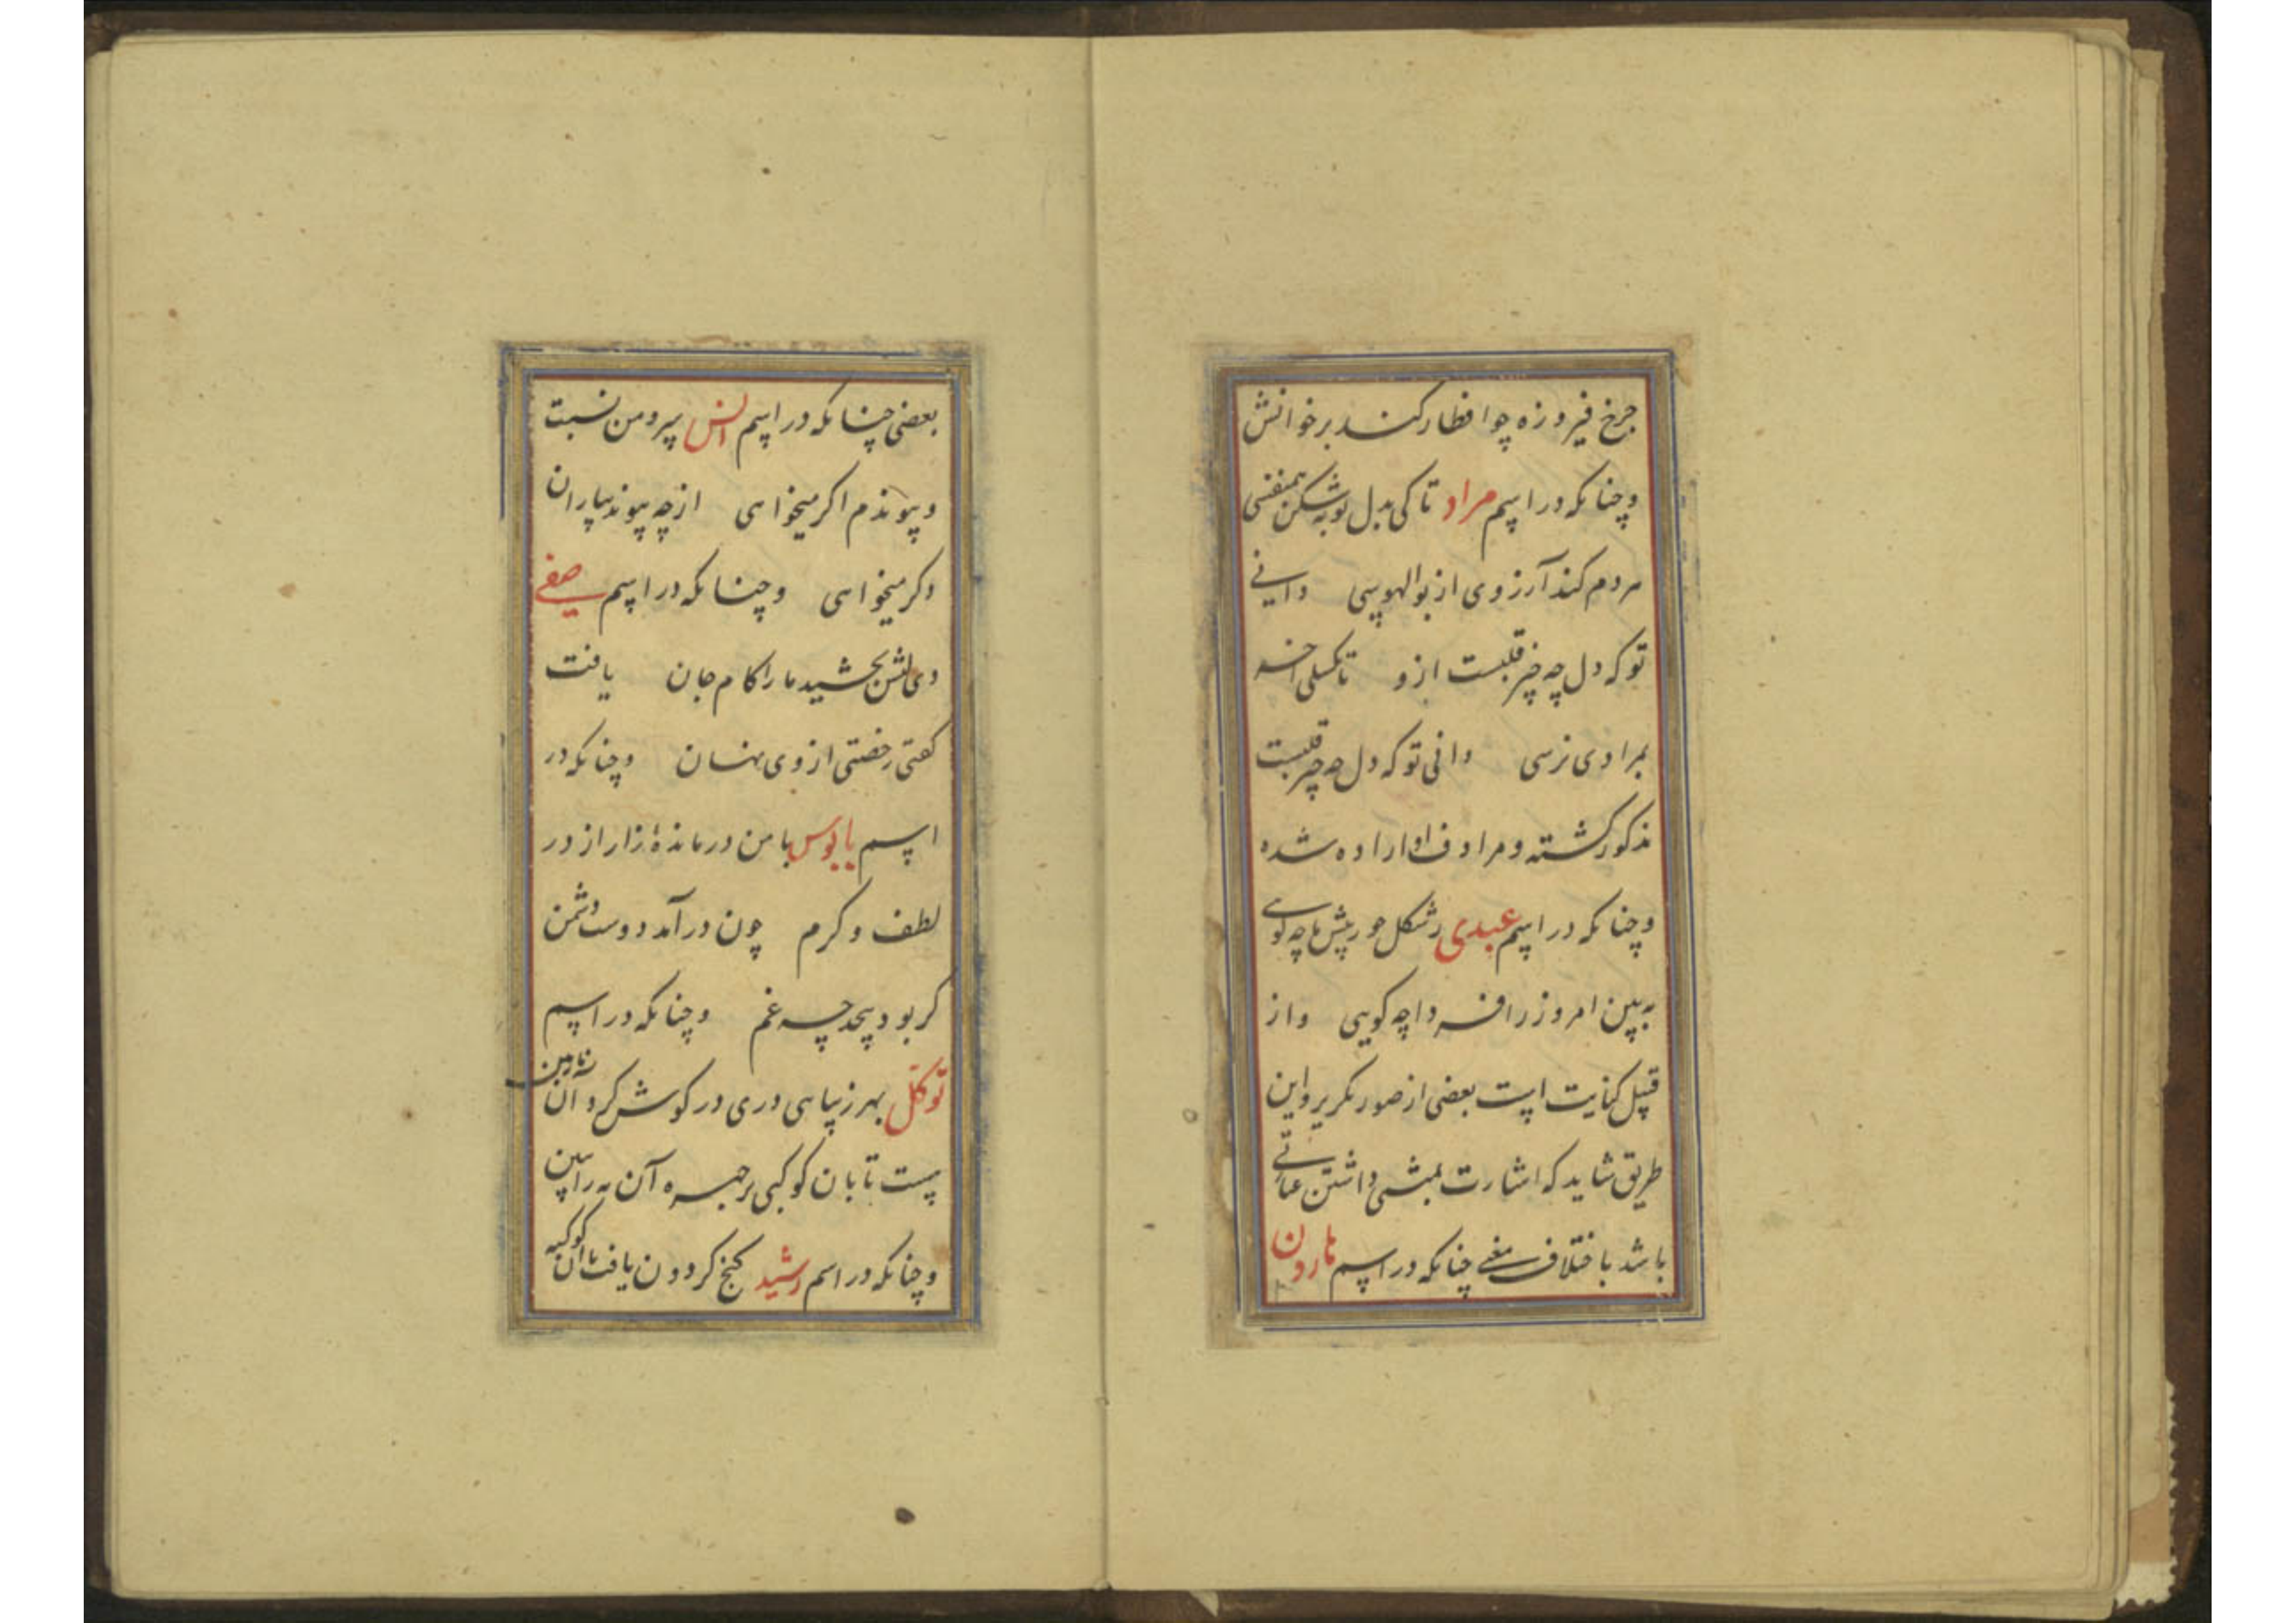 چرخ فیروزه چو افطار کند بر خوانش
وچنانکه در اسم مراد تا کی بدل تو بشکن همنفسی
مردم کند آرزوی از بوالهوسی دانی
تو که دل چه چیز قلبست ازو تا نکسلی
بمرادی نرسی دانی تو که دل چه چیز قلبست
مذکور کشته و مرادف او اراده شده
وچنانکه در اسم عبدی ز شکل حور پیش ما چه کوی
به بین امروز را فردا چه کویی واز
قبیل کنایت است بعضی از صور تکریر واین
طریق شاید که اشارت بمثنی داشتن عبارتی
باشد باختلاف معنی چنانکه در اسم هارون
بعضی چنانکه در اسم انس پیرو من نسبت
وپیوندم اکر میخواهی از چه پیوند بیاران
دکر میخواهی وچنانکه در اسم صفی
بخشید ما را کام جان یافت
کفتی رخصتی از وی نهان وچنانکه در
اسم بابوس با من درمانده زار از در
لطف و کرم چون درآمد دوست دشمن
کر بود بیحد چه غم وچنانکه در اسم
توکل بهر زیباهی دری در کوش کرد آن نازنین
هست تابان کوکبی بر چهره آن مه را ببین
وچنانکه در اسم رشید کنج کردون یافت با آن کوکبه